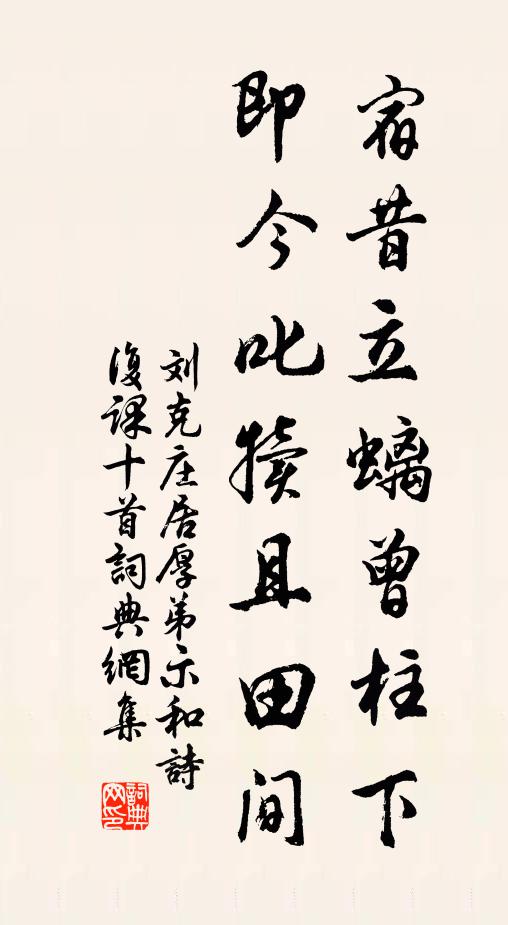 宿昔立螭曾柱下
即今叱犊且田间
刘克庄居厚弟示和詩
復课十首詞典網集
詞典网印